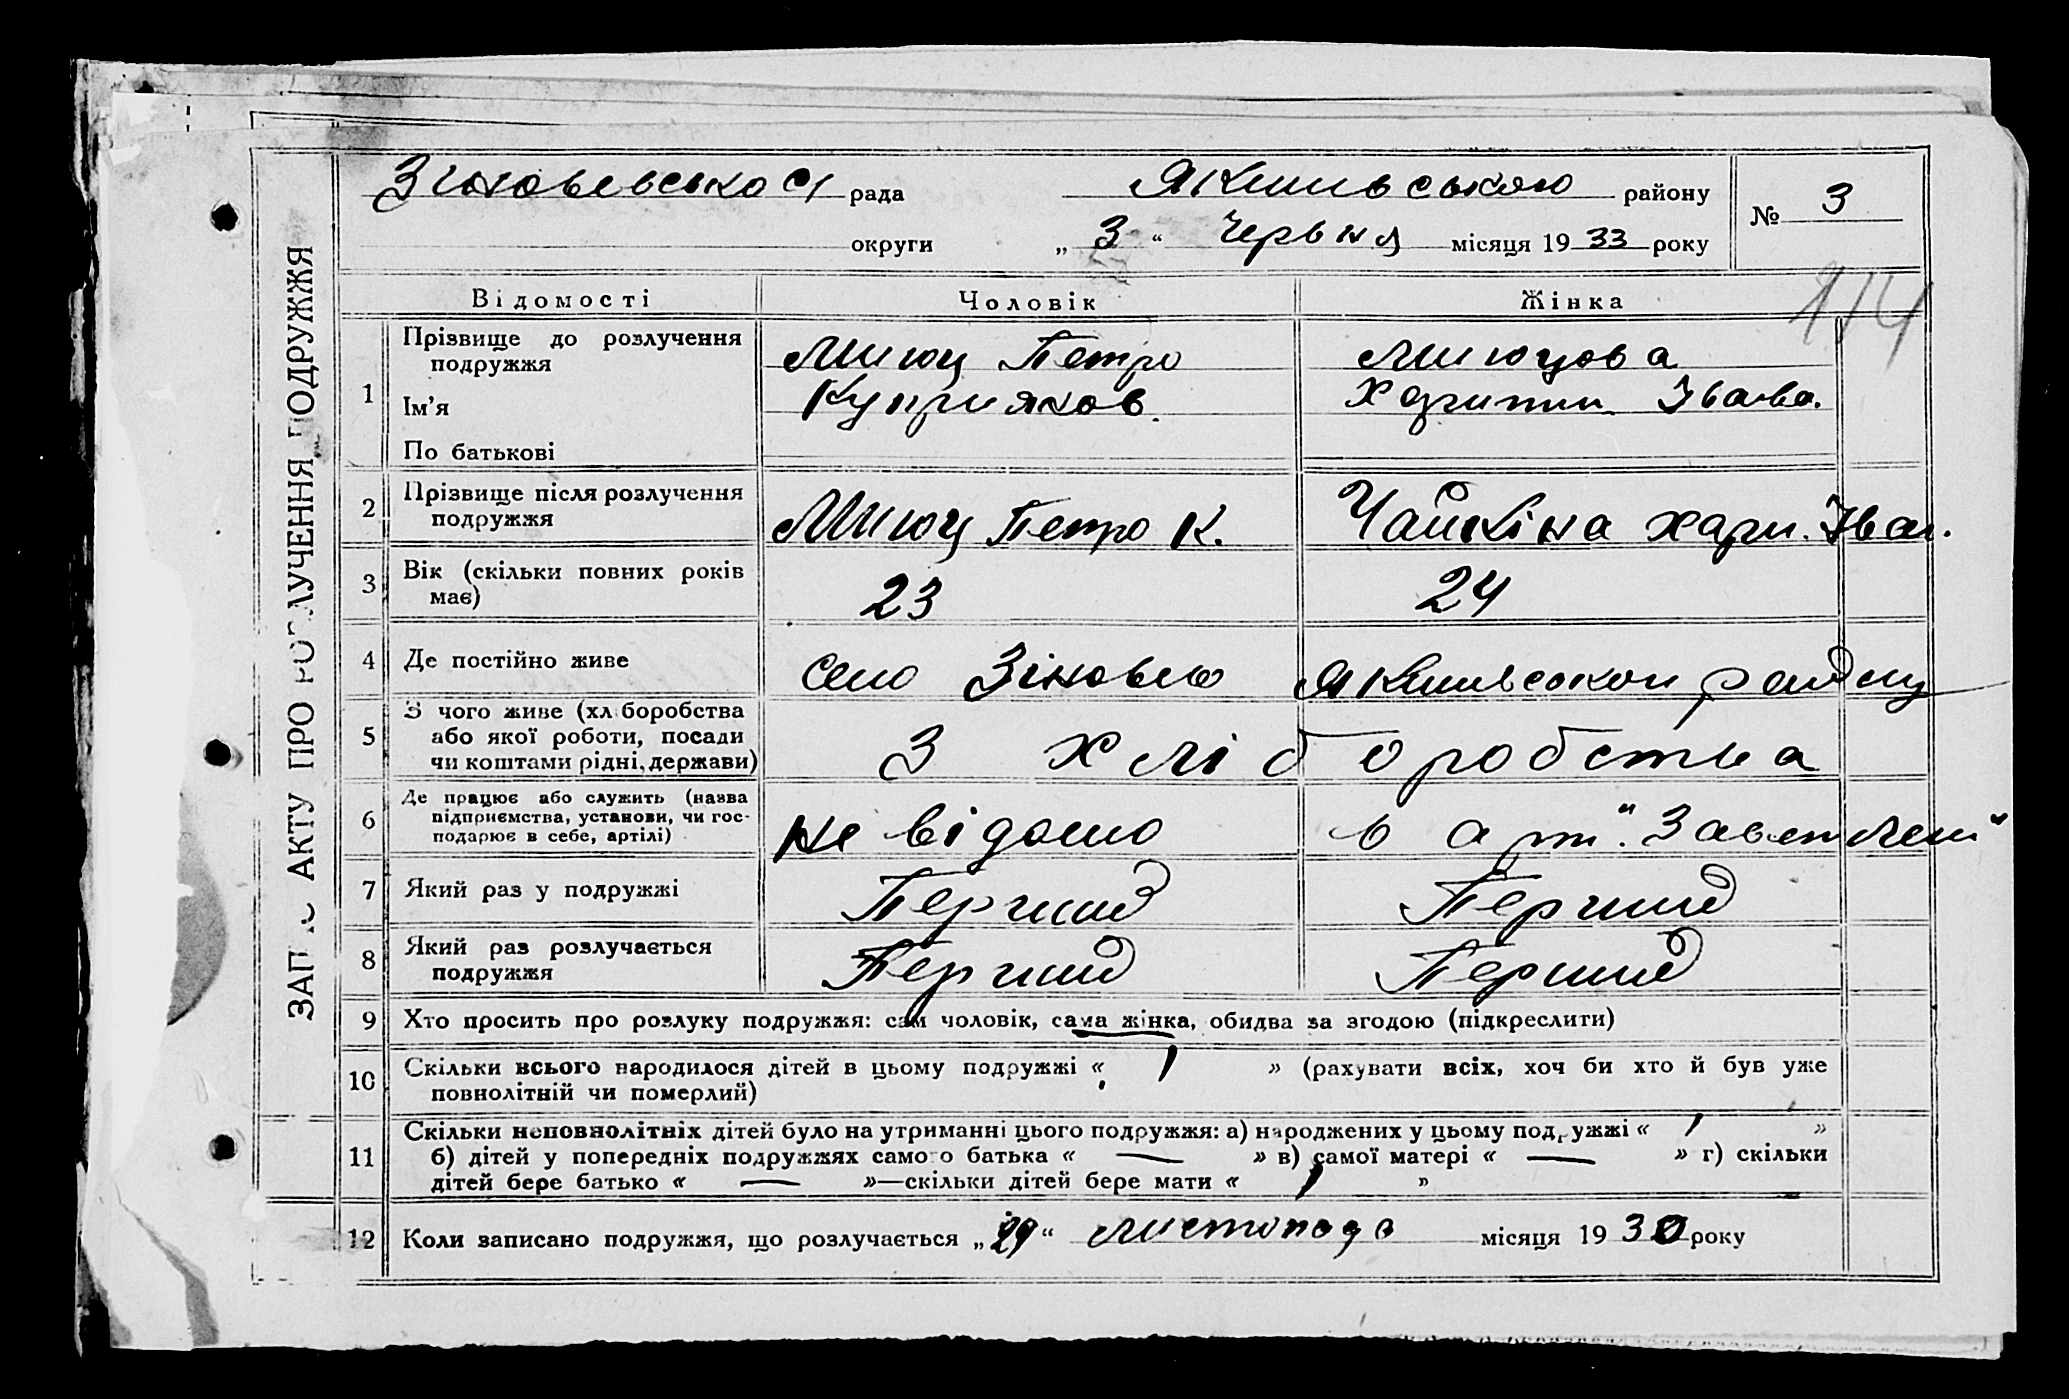 ЗАПИС АКТУ ПРО РОЗЛУЧЕННЯ ПОДРУЖЖЯ
Зіновьевська рада Якимівського району № 3
округи „ 3 “ Червня місяця 1933 року
174
Відомості Чоловік Жінка
1 Прізвище до розлучення подружжя Милюц Петро Милюцова
Ім’я Куприянов. Харитин Іванв.
По батькові
2 Прізвище після розлучення
подружжя Милюц Петро К. Чайкіна Хари. Іван.
3 Вік (скільки повних років
має) 23 24
4 Де постійно живе Село Зіновьево Якимівськои району
5 З чого живе (хліборобства
або якої роботи, посади
чи коштами рідні, держави) З хліборобства
6 Де працює або служить (назва
підприємства, установи, чи гос-
подарює в себе, артілі) не відомо в арт. "Завет Лені"
7 Який раз у подружжі Перший Перший
8 Який раз розлучається
подружжя Перший Перший
9 Хто просить про розлуку подружжя: сам чоловік, сама жінка, обидва за згодою (підкреслити)
10 Скільки всього народилося дітей в цьому подружжі « 1 » (рахувати всіх, хоч би хто й був уже
повнолітній чи померлий)
11 Скільки неповнолітніх дітей було на утриманні цього подружжя: а) народжених у цьому подружжі « 1 »
б) дітей у попередніх подружжях самого батька « — » в) самої матері « — » г) скільки
дітей бере батько « — »—скільки дітей бере мати « 1 »
12 Коли записано подружжя, що розлучається „ 29 “ Листопада місяця 1930 року